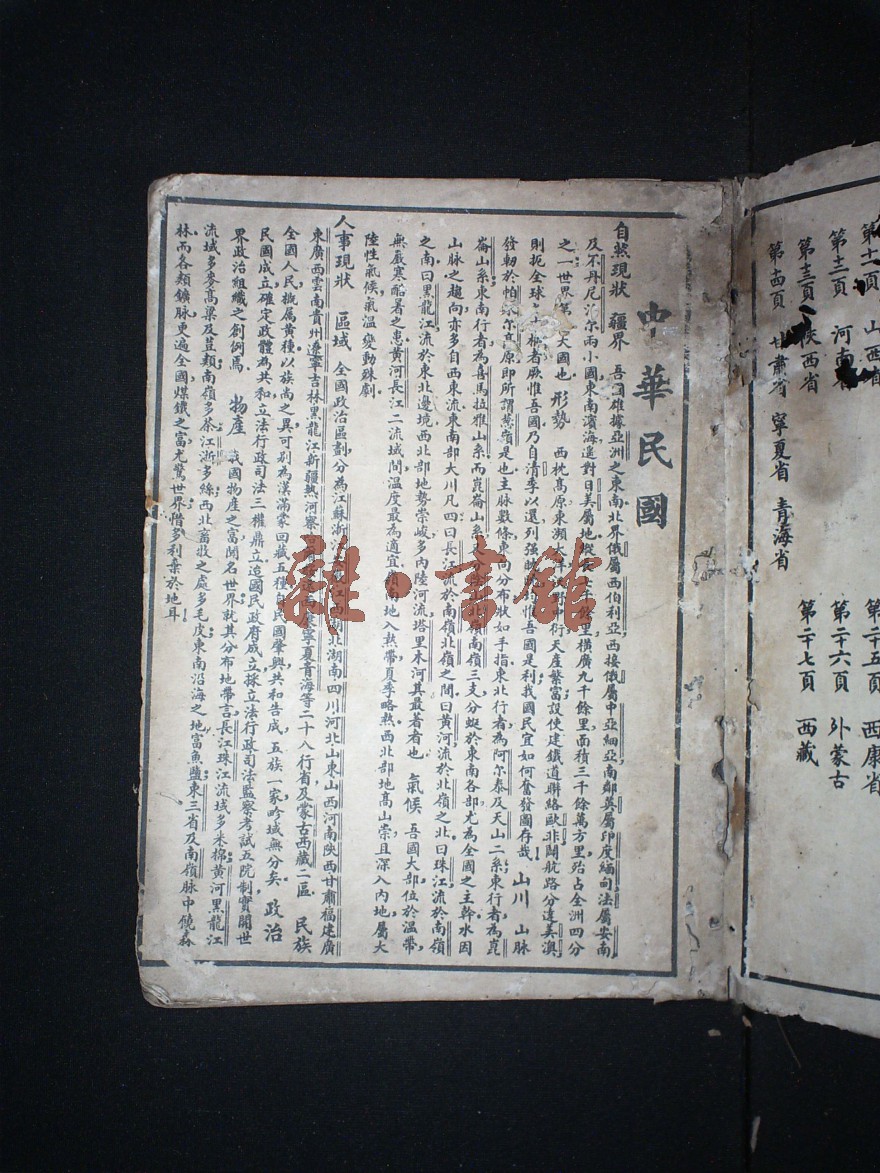 第十二頁 山西省
第十三頁 河南省
第十三頁 陝西省
第十四頁 甘肅省 寧夏省 青海省
第二十五頁 西康省
第二十六頁 外蒙古
第二十七頁 西藏
中華民國
自然現狀 疆界 吾國雄據亞洲之東南北界俄屬西伯利亞西接俄屬中亞細亞南鄰英屬印度緬甸法屬安南
及不丹尼泊尔兩小國東南濱海遙對日美屬地縱 餘里橫廣九千餘里面積三千餘萬方里殆占全洲四分
之一世界第 大國也 形勢 西枕髙原東瀕太 衍天產繁富設使建鐵道聯絡歐非闢航路分達美澳
則扼全球 樞者厥惟吾國乃自清季以還列强 惟吾國是利我國民宜如何奮發圖存哉 山川 山脈
發軔於帕米尔髙原即所謂葱嶺是也主脈數條東向分布狀如手指東北行者為阿尔泰及天山二系東行者為崑
崙山系東南行者為喜馬拉雅山系而崑崙山系 嶺南嶺三支分蜒於東南各部尤為全國之主幹水因
山脈之趨向亦多自西東流東南部大川凡四曰長江流於南嶺北嶺之間曰黄河流於北嶺之北曰珠江流於南嶺
之南曰黑龍江流於東北邊境西北部地勢崇峻多內陸河流塔里木河其最著者也 氣候 吾國大部位於溫帶
無嚴寒酷暑之患黄河長江二流域間溫度最為適宜嶺南地入熱帶夏季略熱西北部地髙山崇且深入內地屬大
陸性氣候氣溫變動殊劇
人事現狀 區域 全國政治區劃分為江蘇浙江安徽江西湖北湖南四川河北山東山西河南陝西甘肅福建廣
東廣西雲南貴州遼寧吉林黑龍江新疆熱河察 西康寧夏青海等二十八行省及蒙古西藏二區 民族
全國人民概屬黄種以族尚之異可別為漢滿蒙回藏五種自民國肇興共和告成五族一家畛域無分矣 政治
民國成立確定政體為共和立法行政司法三權鼎立迨國民政府成立採立法行政司法監察考試五院制實開世
界政治組織之創例焉 物產 我國物產之富聞名世界就其分布地帶言長江珠江流域多米棉黄河黑龍江
流域多麥髙粱及荳類南嶺多茶江浙多絲西北畜牧之處多毛皮東南沿海之地富魚鹽東三省及南嶺脈中饒森
林而各類鑛脈更遍全國煤鐵之富尤驚世界惜多利棄於地耳
雜·書館